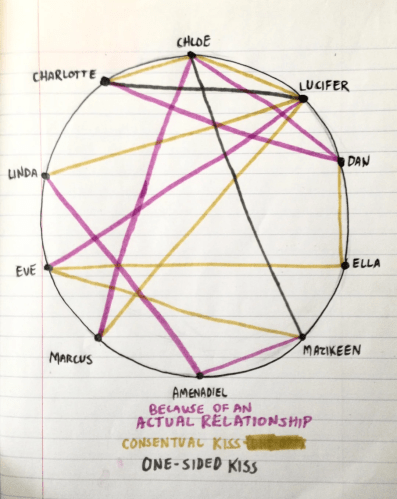 CHLOE
CHARLOTTE
LUCIFER
DAN
LINDA
EVE
ELLA
MARCUS
MAZIKEEN
AMENADIEL
BECAUSE OF AN
ACTUAL RELATIONSHIP
CONSENTUAL KISS
ONE-SIDED KISS